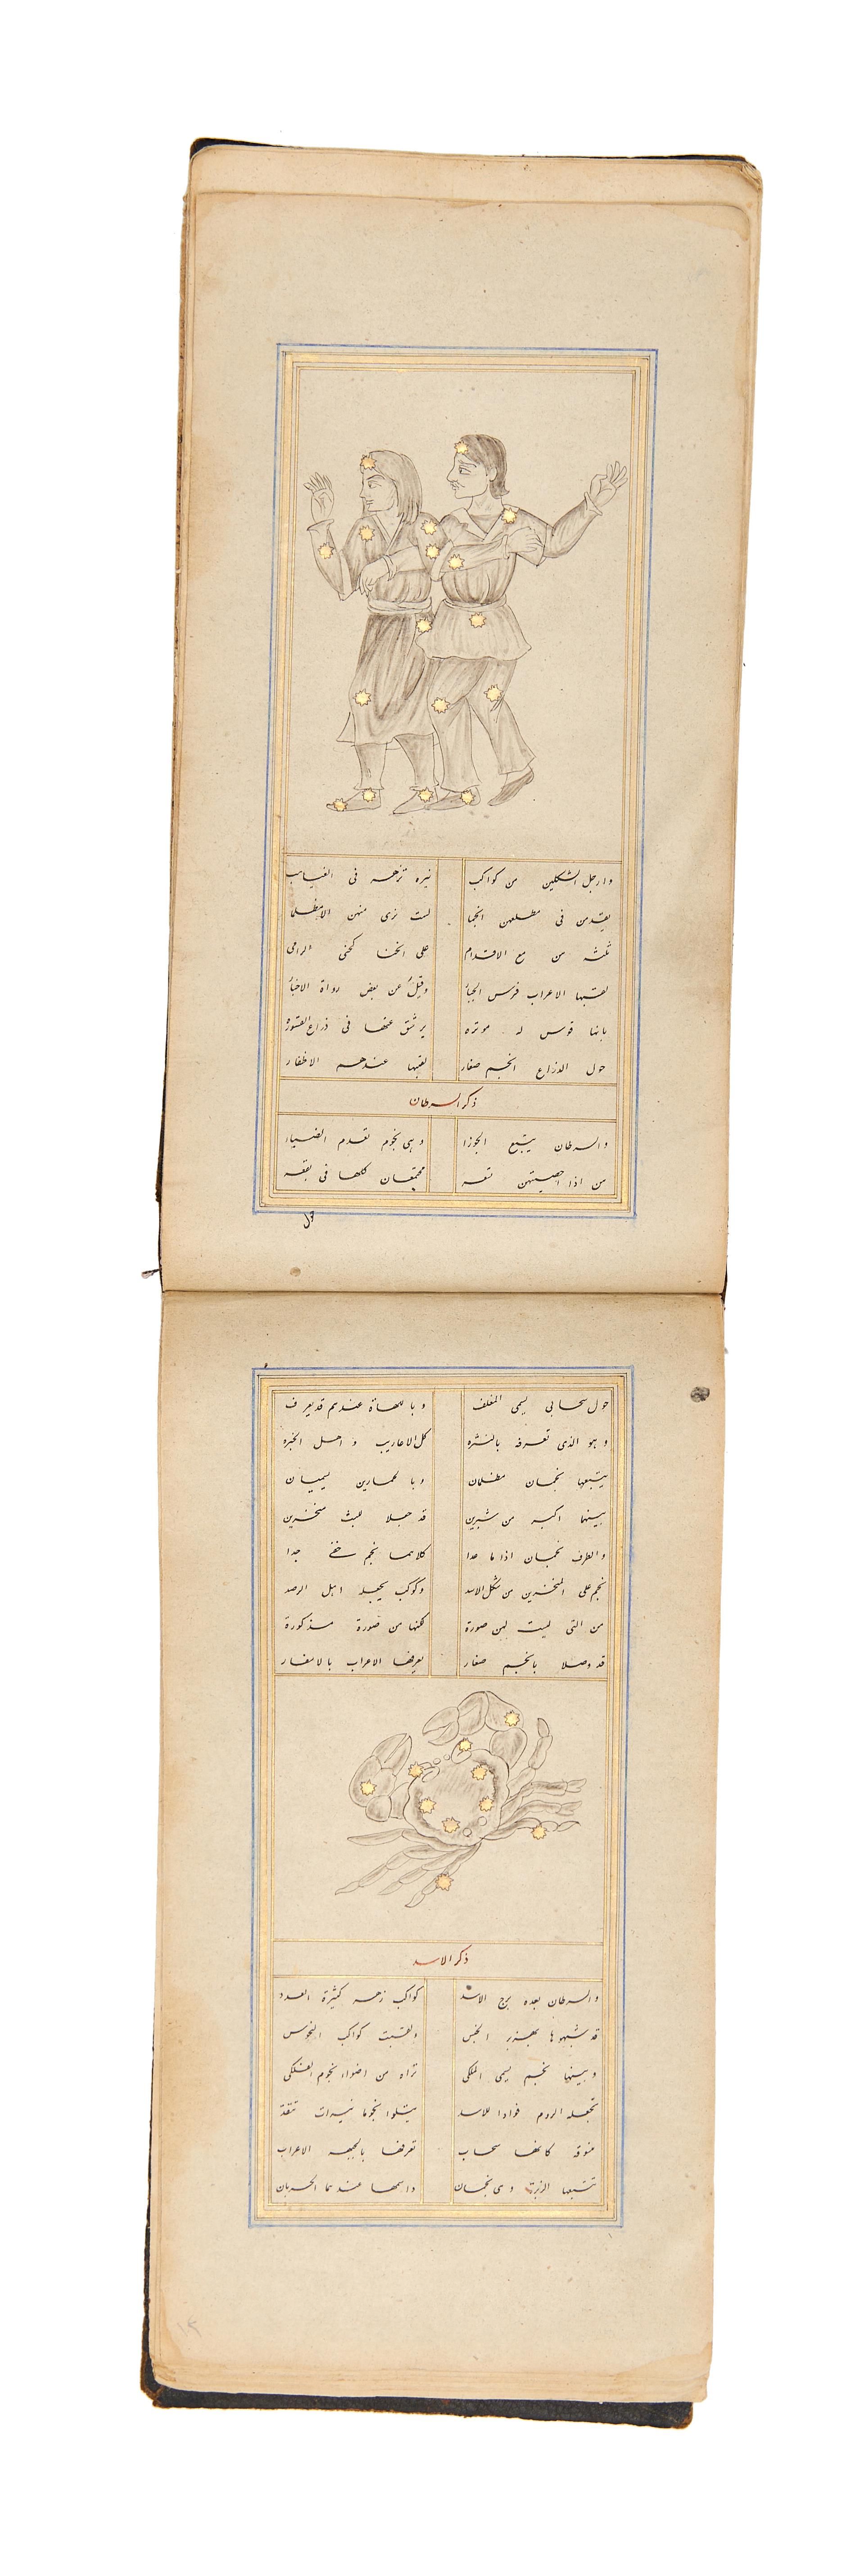 وارجل الشكلين من كواكب نيره تزهر فى الغياهب
يقدمن فى مطلعهن انجما لست ترى منهن الا مظلما
ثلثه من مع الاقدام على انحنا كحنى الرامى
لقبها الاعراب قوس الجبار وقيل عن بعض رواة الاخبار
بانها قوس له موتره يرشق عنها فى ذراع القسوره
حول الذراع انجم صغار لقبها عندهم الاظفار
ذكر السرطان
والسرطان يتبع الجوزا وهى نجوم تعدم الضياء
من اذا احصيتهن تسعه مجتمعات كلها فى بقعه
حول
حول سحابى يسمى المعلف وباللهاة عندهم قد يعرف
وهو الذى تعرفه بالنثره كل الاعاريب و اهل الخبره
يتبعها نجمان مظلمان وبالحمارين يسميان
بينهما اكبر من شبرين قد جعلا لليث منخرين
والطرف نجمان اذا ما عدا كلاهما نجم خفى جدا
نجم على المنخرين من شكل الاسد وكوكب يجعله اهل الرصد
من التى ليست لهن صورة لكنها من صورة مذكورة
قد وصلا بانجم صغار يعرفها الاعراب بالاشفار
ذكر الاسد
والسرطان بعده برج الاسد كواكب زهر كثيرة العدد
قد شبهوها ولقبت كواكب
وبينها نجم يسمى الملكى تراه من اضواء نجوم الفلك
تجعله الروم فوادا للاسد يتلوا نجوما نيرات تتقد
فوقه كانها سحاب تعرفها بالجبهه الاعراب
تتبعها الزبرة وهى نجمان واسمها عندهما الخرتان